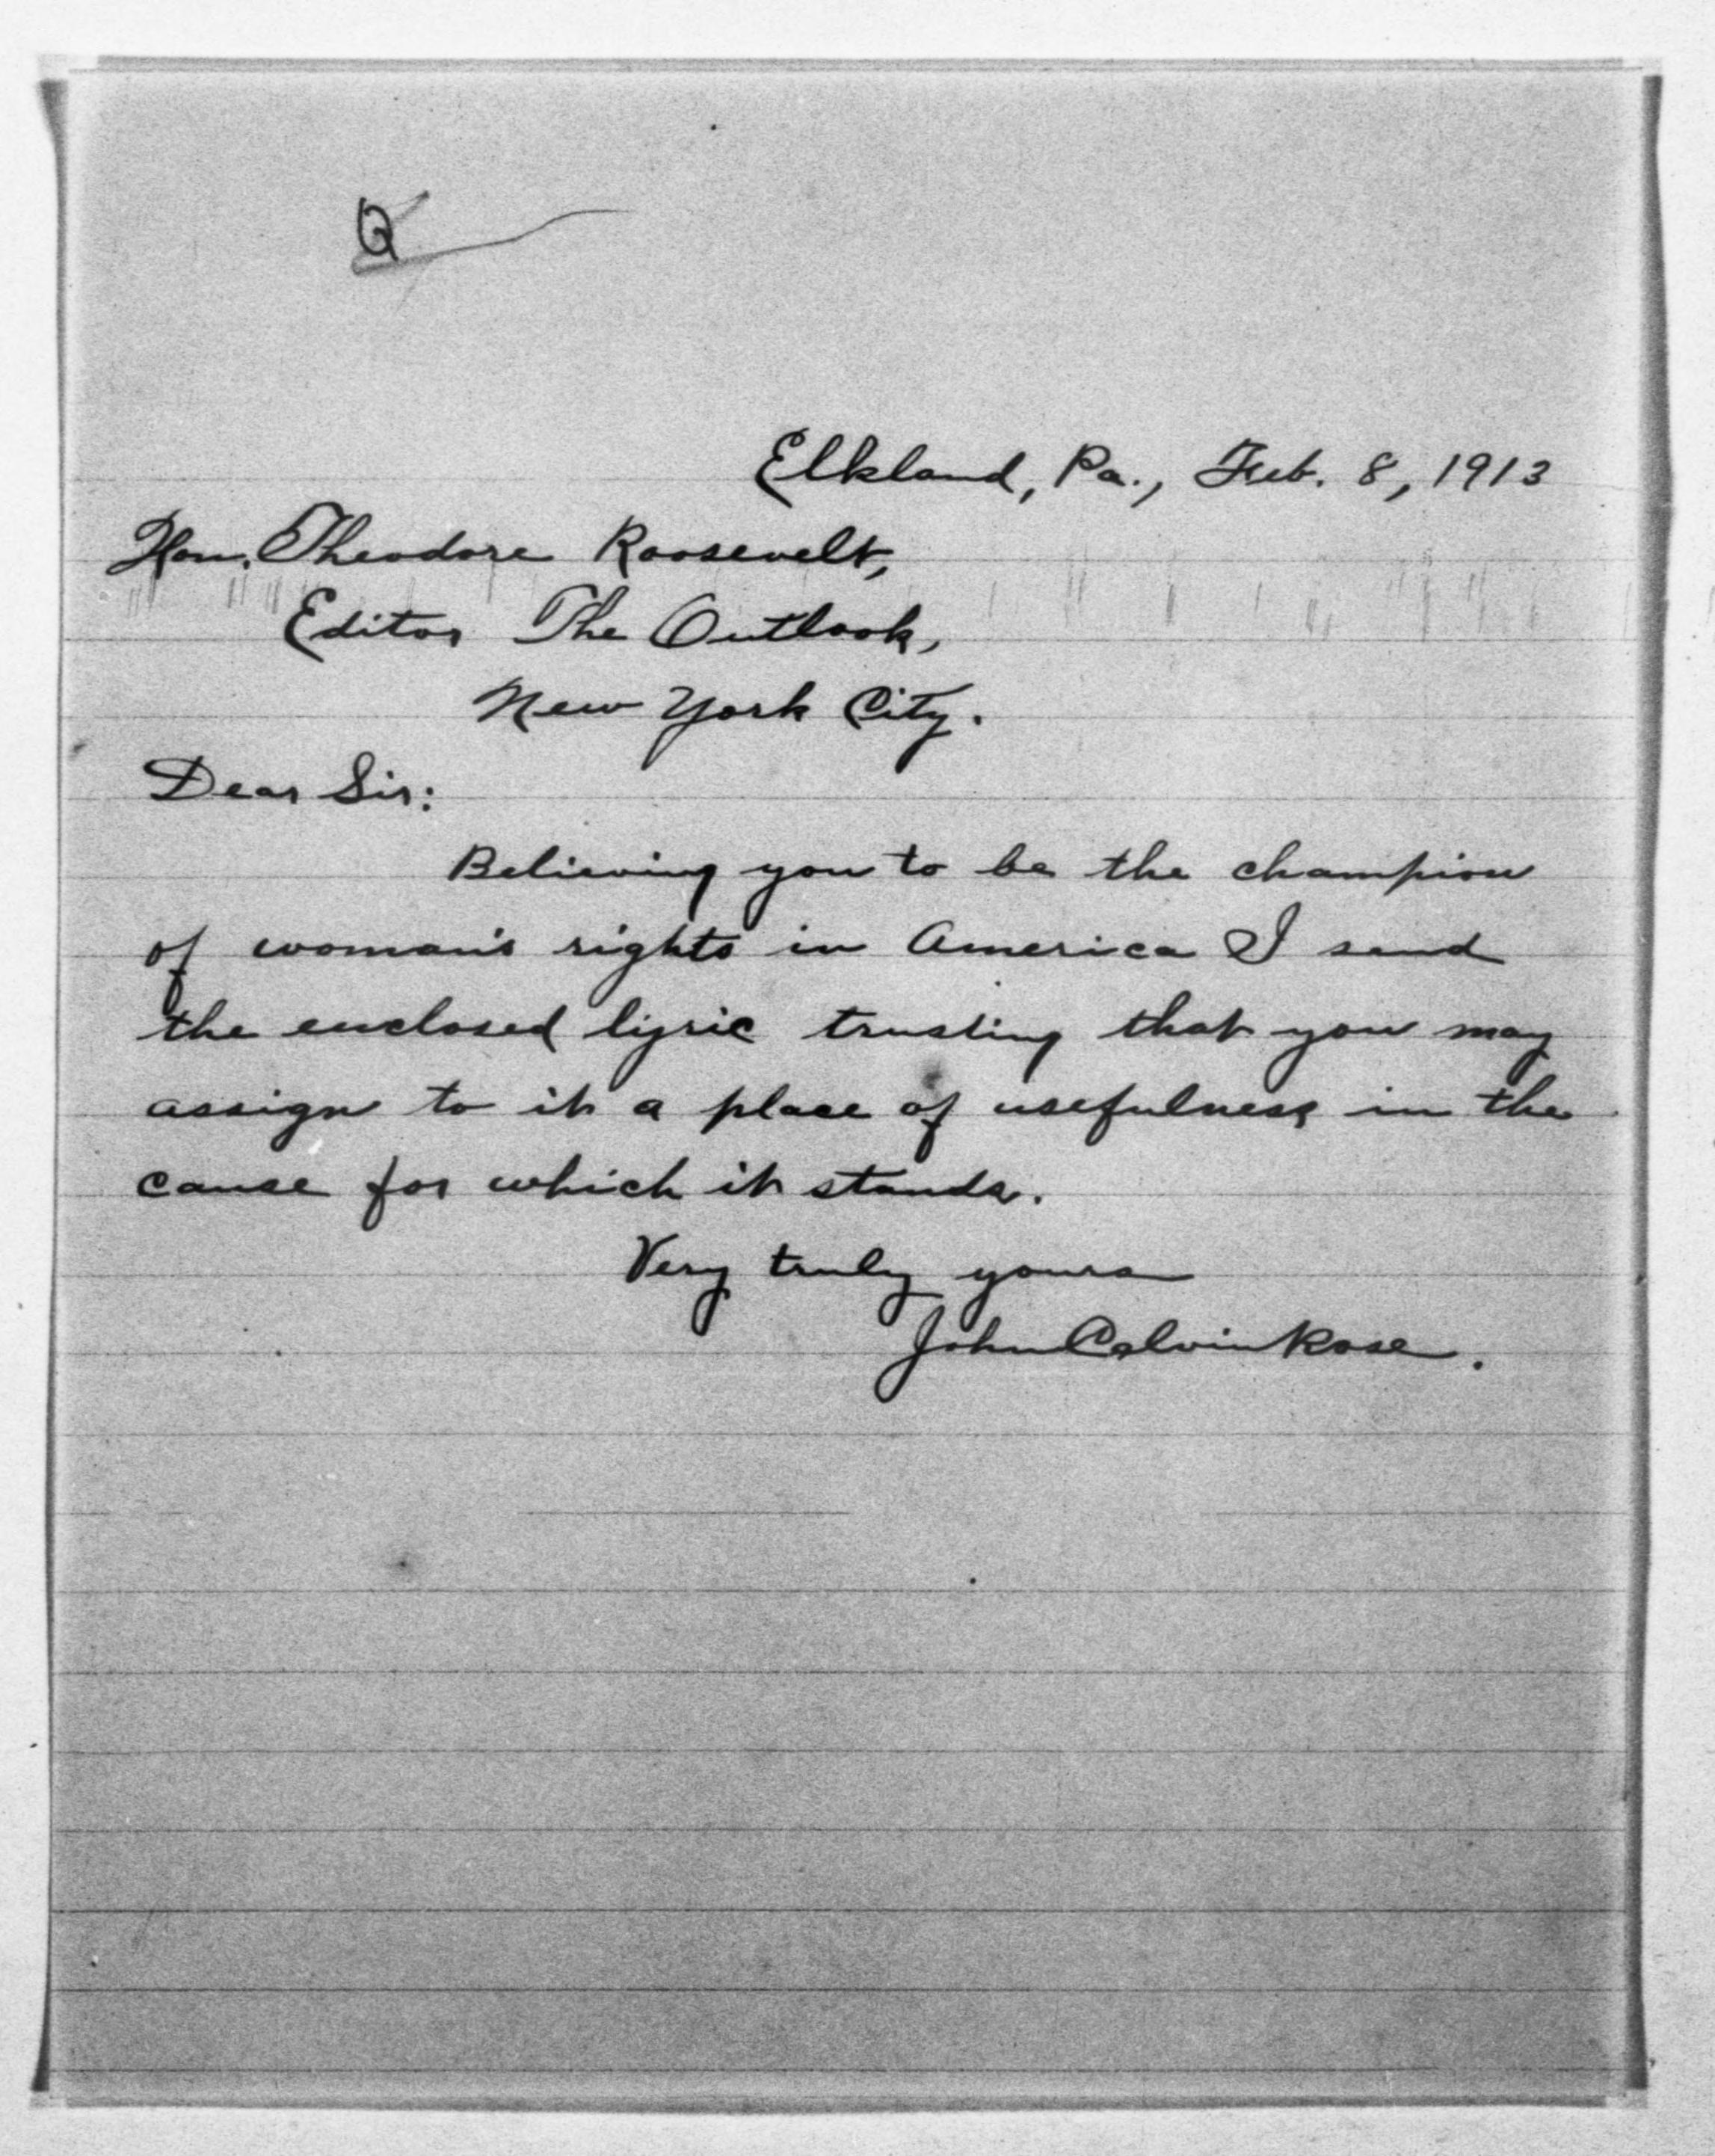 Q
Elkland, Pa., Feb. 8, 1913
Hon. Theodore Roosevelt,
Editor The Outlook,
New York City.
Dear Sir:
Believing you to be the champion
of woman's rights in America I send
the enclosed lyric trusting that you may
assign to it a place of usefulness in the
cause for which it stands.
Very truly yours
John Calvin Rose.